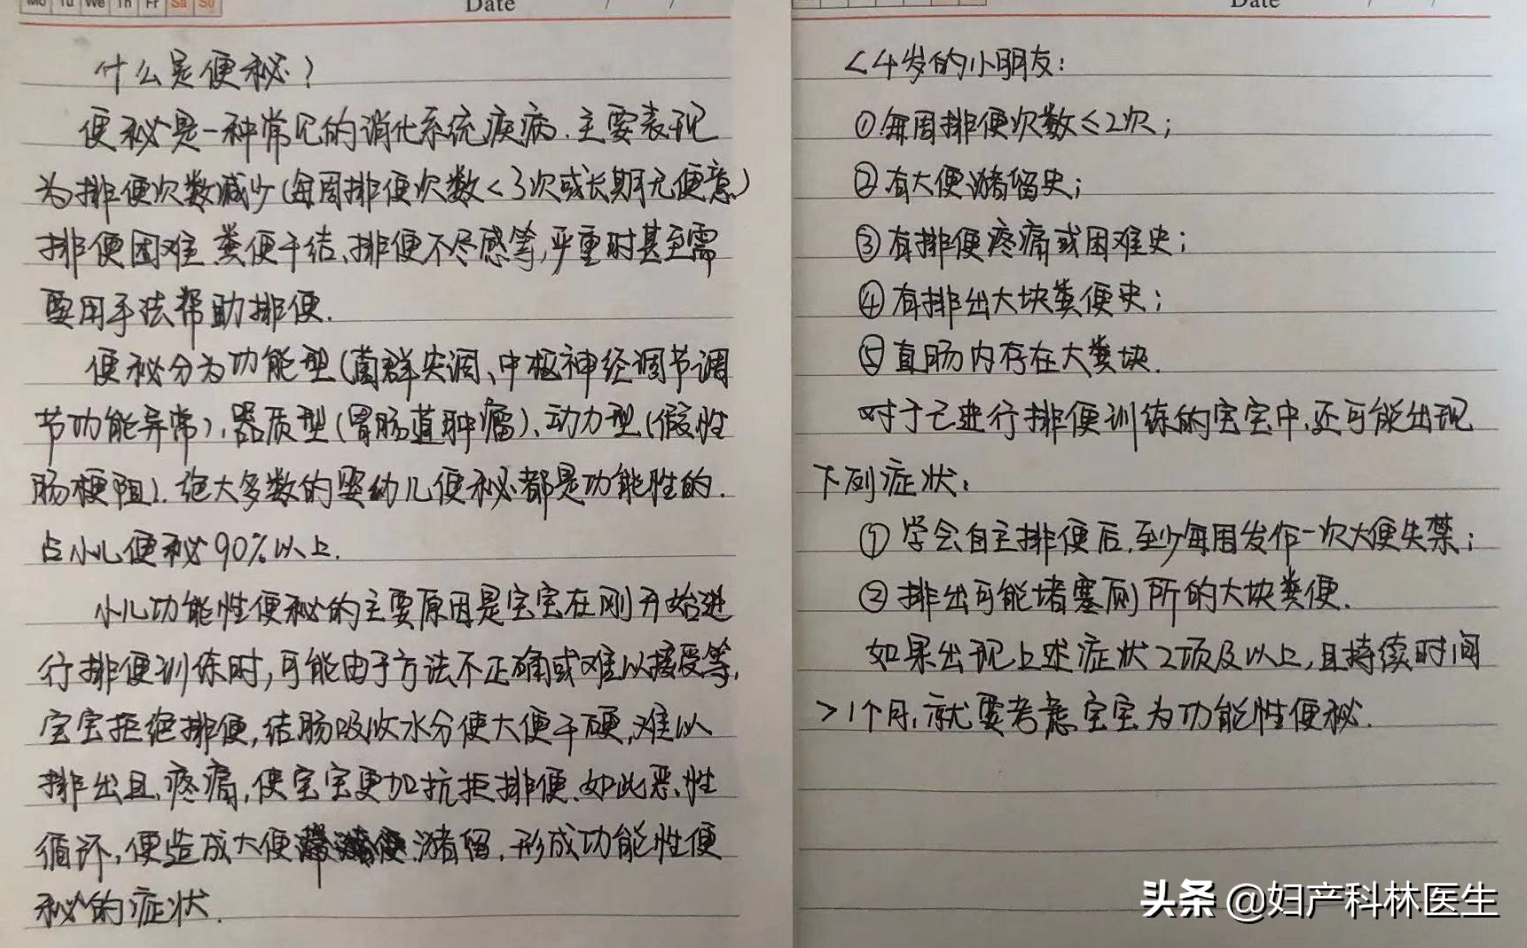 Mo Tu We Th Fr Sa Su
Date / /
什么是便秘?
便秘是一种常见的消化系统疾病.主要表现
为排便次数减少(每周排便次数<3次或长期无便意)
排便困难 粪便干结、排便不尽感等,严重时甚至需
要用手法帮助排便.
便秘分为功能型(菌群失调、中枢神经调节调
节功能异常)、器质型(胃肠道肿瘤)、动力型(假性
肠梗阻).绝大多数的婴幼儿便秘都是功能性的.
占小儿便秘90%以上.
小儿功能性便秘的主要原因是宝宝在刚开始进
行排便训练时,可能由于方法不正确或难以接受等,
宝宝拒绝排便,结肠吸收水分使大便干硬,难以
排出且疼痛,使宝宝更加抗拒排便.如此恶性
循环,便造成大便潴留.形成功能性便
秘的症状.
Date / /
<4岁的小朋友:
①每周排便次数≤2次;
②有大便潴留史;
③有排便疼痛或困难史;
④有排出大块粪便史;
⑤直肠内存在大粪块.
对于已进行排便训练的宝宝中,还可能出现
下列症状:
①学会自主排便后,至少每周发作一次大便失禁;
②排出可能堵塞厕所的大块粪便.
如果出现上述症状2项及以上,且持续时间
>1个月,就要考虑宝宝为功能性便秘.
头条 @妇产科林医生